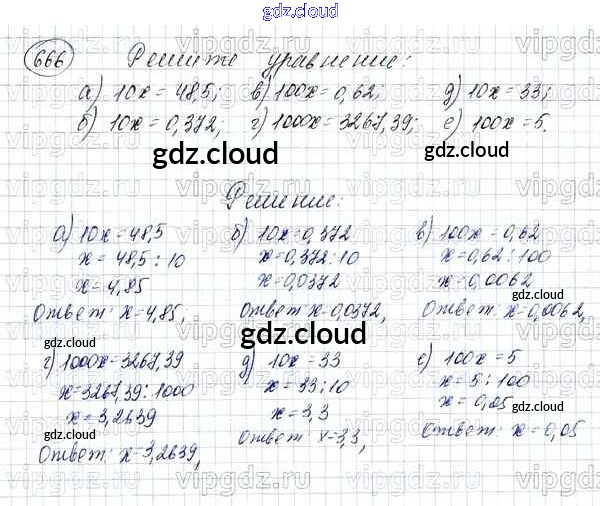 gdz.cloud
666 Решите уравнение:
а) 10x = 48,5; в) 100x = 0,62; д) 10x = 33;
б) 10x = 0,372; г) 1000x = 3267,39; е) 100x = 5.
gdz.cloud gdz.cloud
Решение:
а) 10x = 48,5 б) 10x = 0,372 в) 100x = 0,62
x = 48,5 : 10 x = 0,372 : 10 x = 0,62 : 100
x = 4,85 x = 0,0372 x = 0,0062
Ответ: x = 4,85, Ответ x = 0,0372, Ответ: x = 0,0062,
gdz.cloud gdz.cloud gdz.cloud
г) 1000x = 3267,39 д) 10x = 33 е) 100x = 5
x = 3267,39 : 1000 x = 33 : 10 x = 5 : 100
x = 3,2639 x = 3,3 x = 0,05
gdz.cloud gdz.cloud gdz.cloud
Ответ: x = 3,2639, Ответ: x = 3,3, Ответ: x = 0,05
vipgdz.ru vipgdz.ru vipgdz.ru